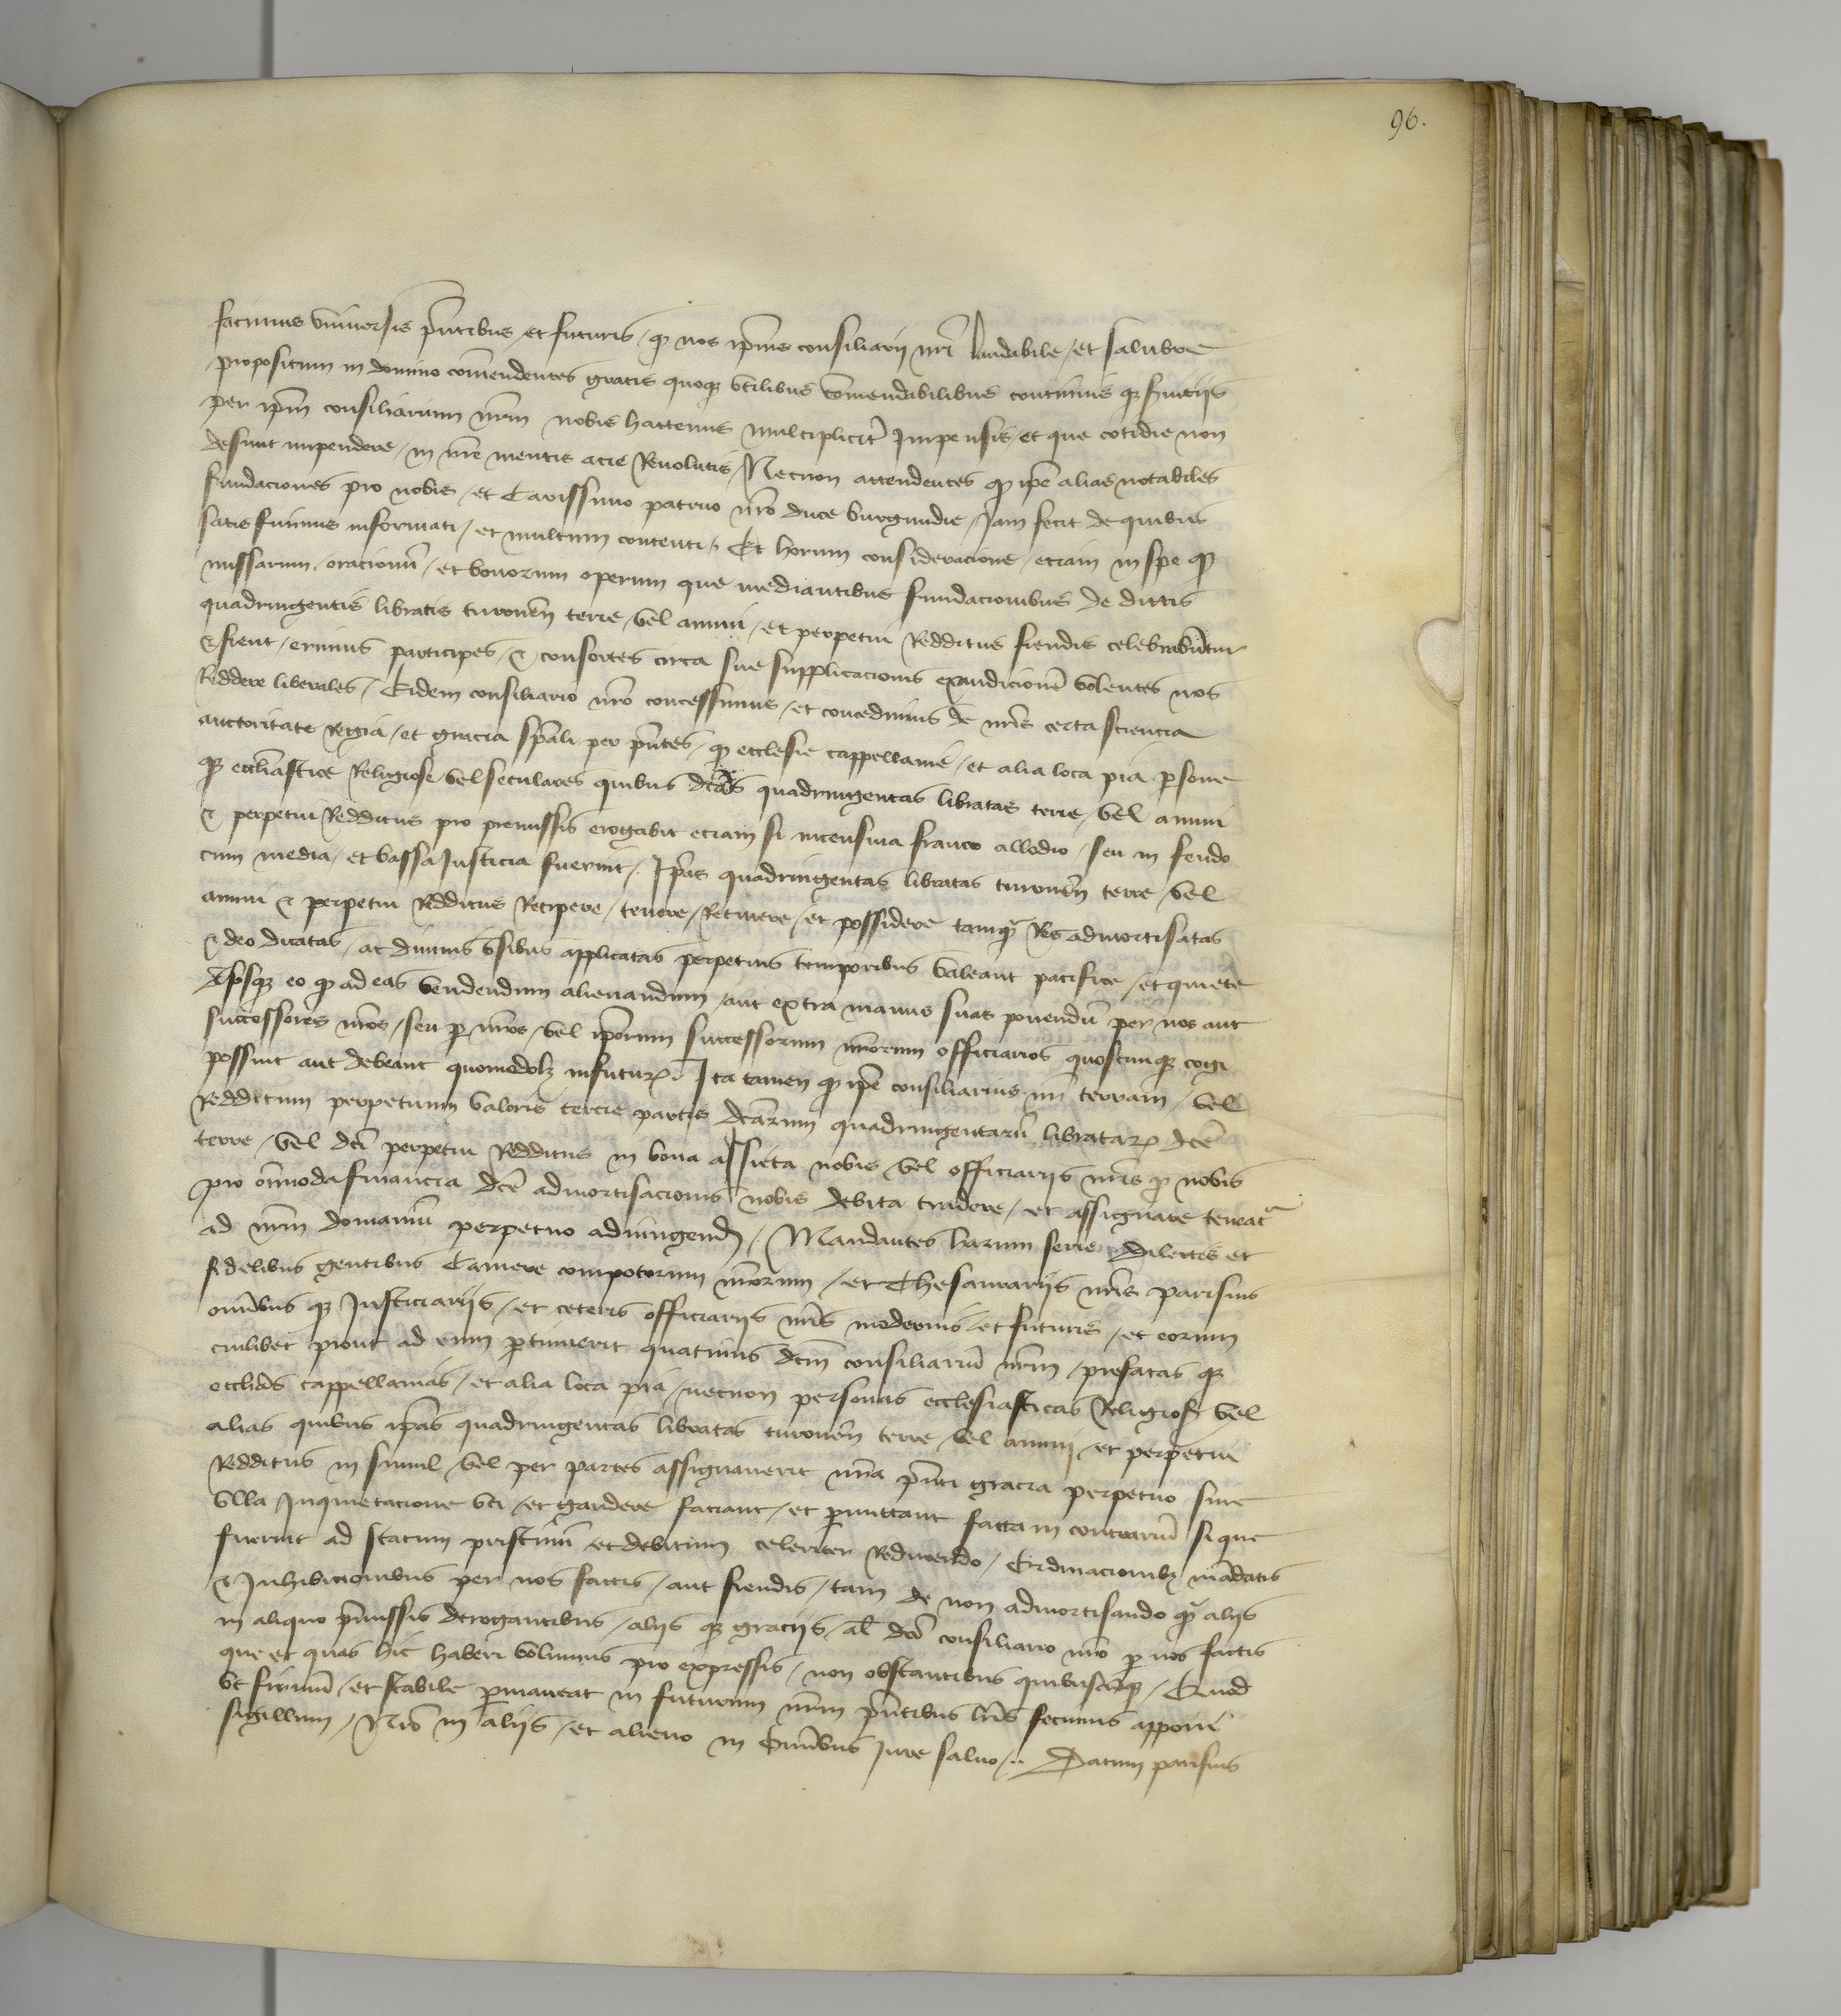 96.
facimus universis pñtibus et futuris / qͥ nos ip̃ius consiliarii nr̃i laudabile / et salubre
propositum in domino com̃endentes gratis quoqꝫ utilibus com̃endabilibus continuis qꝫ serviciis
per ip̃m consiliarium nr̃m nobis hactenus multiplicit̃ impensis / et que cotidie non
desinit impendere / in nr̃e mentis acie revolutis / Necnon attendentes qͥ ip̃e alias notabiles
fundaciones pro nobis / et carissimo patruo nr̃o duce burgundie / Jam fecit de quibus
satis fuimus informati / et multum contenti / Et horum consideracione / eciam in spe qͥ
missarum / oracionũ / et bonorum operum que mediantibus fundacionibus de dictis
quadringentis libratis turoneñ terre / vel annui / et perpetui redditus fiendis celebrabũtur
⁊ fient / erimus participes / ⁊ consortes circa sue supplicacionis exaudicionẽ volentes nos
reddere liberales / Eidem consiliario nr̃o concessimus / et concedimus de nr̃is certa sciencia
auctoritate regia / et gracia sp̃ali per pñtes / qͥ ecclesie cappellanie / et alia loca pia p̱sone
qꝫ eccl̃iastice religiose vel seculares quibus dc̃as quadringentas libratas terre / vel annui
⁊ perpetui redditus pro premissis erogabit eciam si in censiva franco allodio / seu in feudo
cum media / et bassa Justicia fuerint / Ip̃as quadringentas libratas turoneñ terre / vel
annui ⁊ perpetui redditus recipere / tenere / retinere / et possidere tamqᷓ res admortisatas
⁊ deo dicatas / ac divinis usibus applicatas perpetuis temporibus valeant pacifice / et quiete
Absqꝫ eo qͥ ad eas vendendum alienandum / aut extra manus suas ponendũ per nos aut
successores nr̃os / seu p̱ nr̃os / vel ip̃orum successorum nr̃orum officiarios quoscunqꝫ cogi
possint aut debeant quomodolꝫ in futurꝝ / Ita tamen qͥ ip̃e consiliarius nr̃ terram / vel
redditum perpetuum valoris tercie partis dc̃arum quadringentarũ libratarꝝ dc̃e
terre / vel dc̃i perpetui redditus in bona assieta nobis vel officiariis nr̃is p̱ nobis
pro om̃imoda financia dc̃e admortisacionis nobis debita tradere / et assignare teneat᷑
ad nr̃m domaniũ perpetuo adiungend̃ / Mandantes harum serie Dilectis et
fidelibus gentibus Camere compotorum nr̃orum / et Thesaurariis nr̃is parisius
om̃ibus qꝫ Justiciariis / et ceteris officiariis nr̃is modernis / et futuris / et eorum
cuilibet prout ad eum p̱tinuerit quatinus dc̃m consiliariũ nr̃m / prefatas qꝫ
eccl̃ias cappellanias / et alia loca pia / necnon personas ecclesiasticas religios̃ vel
alias quibus ip̃as quadringentas libratas turoneñ terre vel annui et perpetui
redditus in simul vel per partes assignaverit nr̃a pñti gracia perpetuo sine
ulla Inquietacione uti / et gaudere faciant / et p̱mittant facta in contrariũ si que
fuerint ad statum pristinũ et debitum celeriter reducendo / Ordinacionibꝫ mãdatis
⁊ Inhibicionibus per nos factis / aut fiendis / tam de non admortisando qᷓ aliis
in aliquo pr̃missis derogantibus / aliis qꝫ graciis / al̃ dc̃o consiliario nr̃o p̱ nos factis
que et quas hic haberi volumus pro expressis / non obstantibus quibuscũqꝫ / Quod
ut firmũ / et stabile p̱maneat in futurum nr̃m pñtibus lr̃is fecimus apponi
sigillum / Nr̃o in aliis / et alieno in Om̃ibus Jure salvo / Datum parisius